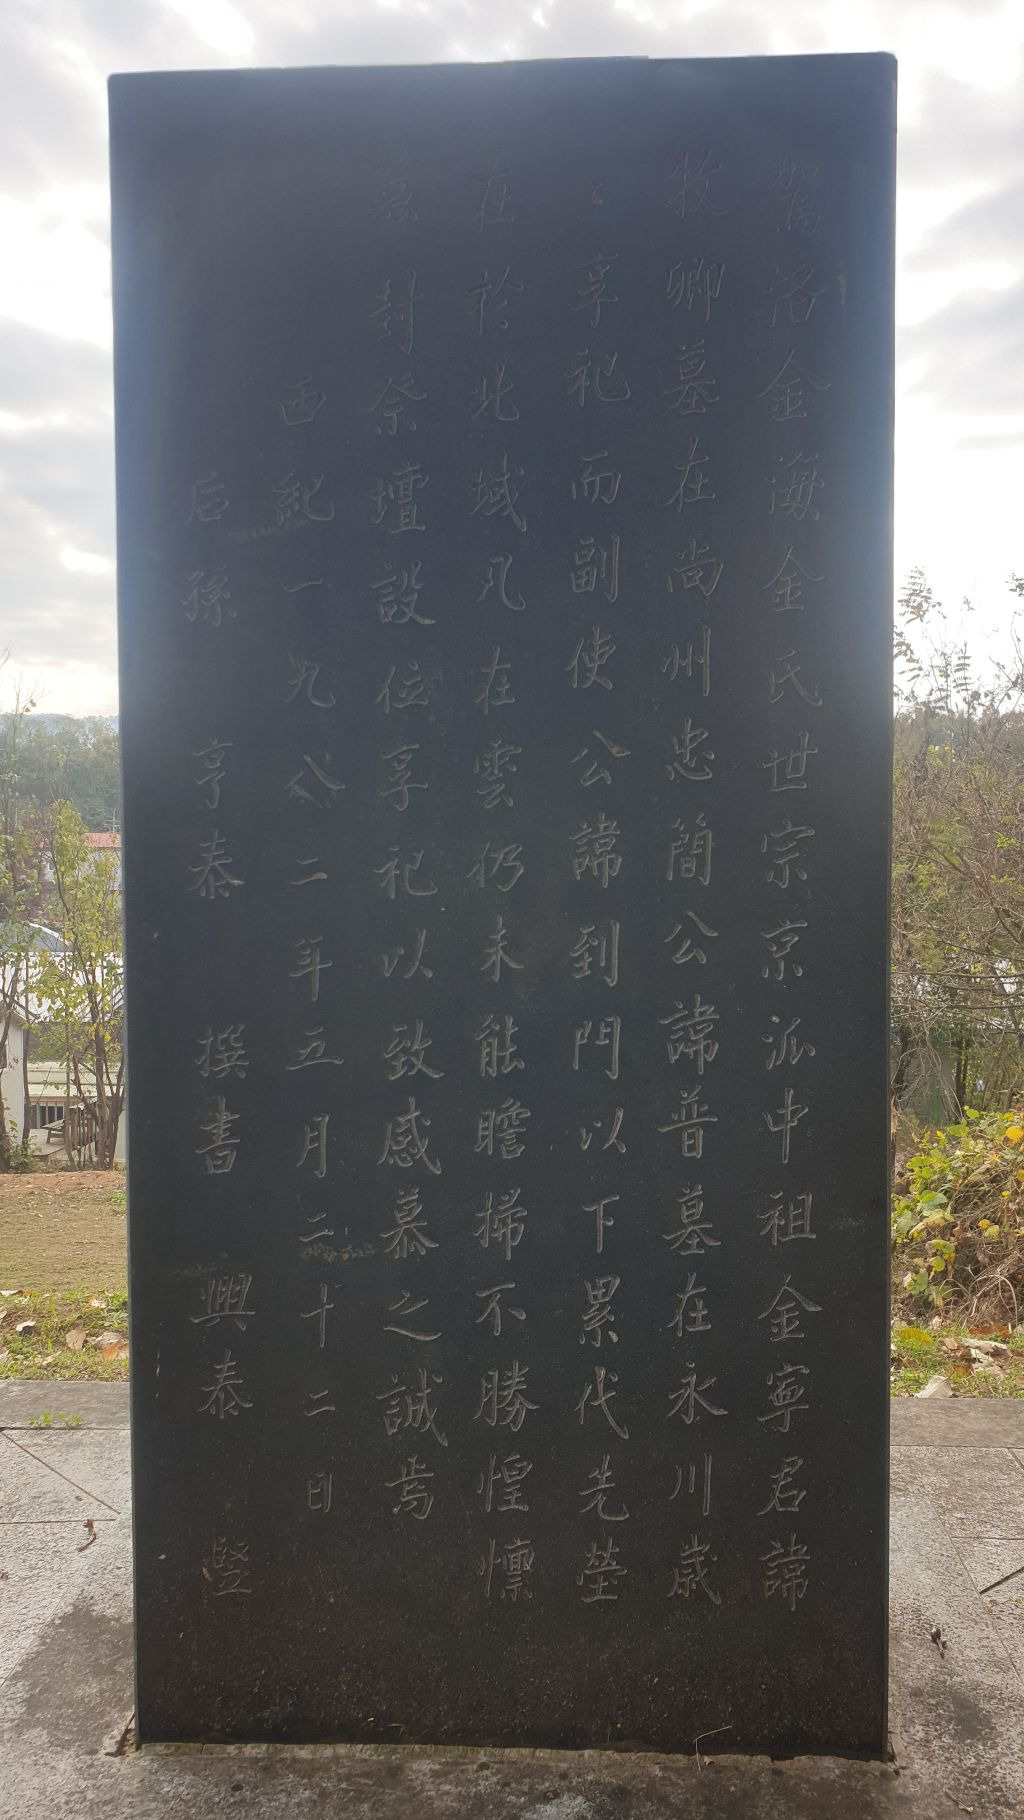 駕洛金海金氏世宗京派中祖金寧君諱
牧卿墓在尚州忠簡公諱普墓在永川歲
〻享祀而副使公諱到門以下累代先塋
在於此域凡在雲仍未能瞻掃不勝惶懍
茲封祭壇設位享祀以致感慕之誠焉
西紀一九八二年五月二十二日
后孫 亨泰 撰書 興泰 豎